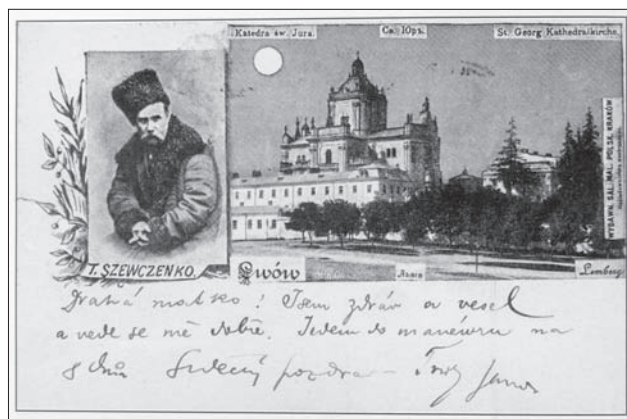 Katedra św. Jura.
Св. Юра.
St. Georg Kathedralkirche.
WYDAWN. SAL. MAL. POLSK. KRAKÓW
T. SZEWCZENKO.
Lwów
Львів
Lemberg.
Drahá matko! Jsem zdráv a vesel
a vede se mě dobře. Jedem do manévru na
8 dnů Srdečný pozdrav Tvůj